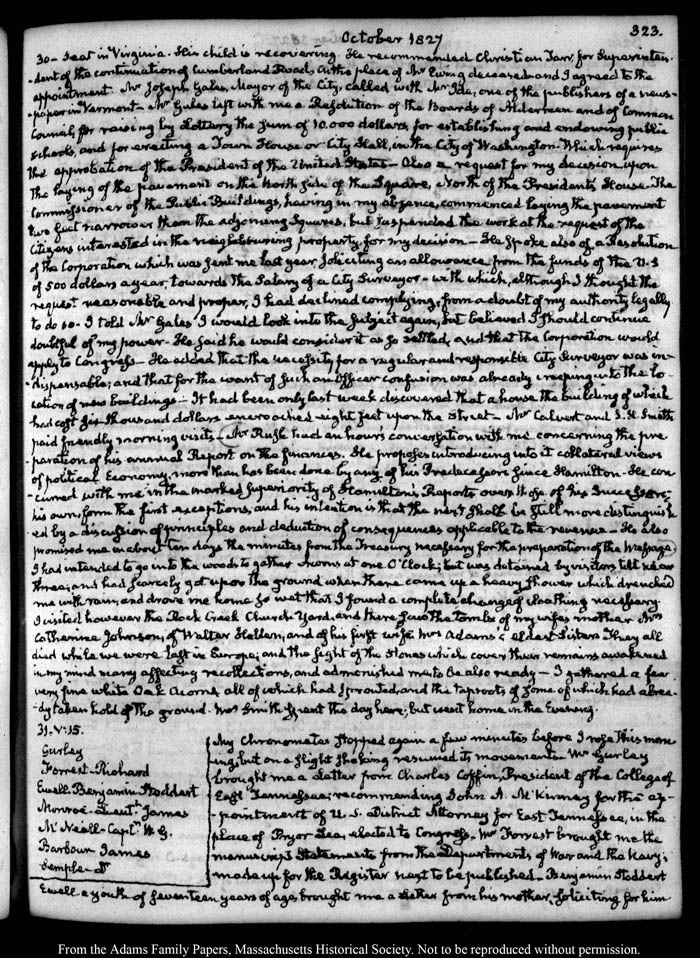 October 1827
323.
30 - Seat in Virginia. His child is recovering. He recommended Christian Tarr, for Superinten-
-dent of the continuation of Cumberland Road, in the place of Mr Ewing deceased and I agreed to the
appointment. Mr Joseph Gales, Mayor of the City, called with Mr Ide, one of the publishers of a news-
-paper in Vermont - Mr Gales left with me a Resolution of the Boards of Aldermen and of Common
Council, for raising by Lottery the sum of 10.000 dollars, for establishing and endowing public
schools, and for erecting a Town House or City Hall, in the City of Washington. Which requires
the approbation of the President of the United States - Also a request for my decision upon
the laying of the pavement on the North side of the Square, North of the President's House. The
Commissioner of the Public Buildings, having in my absence, commenced laying the pavement
two feet narrower than the adjoining Squares, but suspended the work at the request of the
Citizens interested in the neighbouring property, for my decision - He spoke also of a Resolution
of the Corporation which was sent me last year, soliciting an allowance from the funds of the U.S
of 500 dollars a year, towards the Salary of a City Surveyor - with which, although I thought the
request reasonable and proper, I had declined complying, from a doubt of my authority legally
to do so. I told Mr Gales I would look into the subject again, but believed I should continue
doubtful of my power. He said he would consider it as so settled, and that the Corporation would
apply to Congress - He added that the necessity for a regular and responsible City Surveyor was in-
-dispensable; and that for the want of such an Officer confusion was already creeping into the lo-
cation of new buildings - It had been only last week discovered that a house the building of which
had cost six thousand dollars encroached eight feet upon the Street - Mr Calvert and S. H. Smith
paid friendly morning visits - Mr Rush had an hour's conversation with me concerning the pre-
-paration of his annual Report on the finances. He proposes introducing into it collateral views
of political Economy, more than has been done by any of his Predecessors since Hamilton. He con-
curred with me in the marked superiority of Hamilton's Reports over those of his Successors;
his own, form the first exceptions, and his intention is that the next shall be still more distinguish
ed by a discussion of principles and deduction of consequences applicable to the revenue - He also
promised me in about ten days the minutes from the Treasury necessary for the preparation of the Message.
I had intended to go into the woods to gather Acorns at one O'Clock; but was detained by visitors till near
three; and had scarcely got upon the ground when there came up a heavy shower which drenched
me with rain, and drove me home so wet that I found a complete change of cloathing necessary
I visited however the Rock Creek Church Yard, and there saw the tombs of my wifes mother Mrs
Catherine Johnson, of Walter Hellen, and of his first wife Mrs Adams's eldest Sister. They all
died while we were last in Europe; and the sight of the Stones which cover their remains awakened
in my mind many affecting recollections, and admonished me to be also ready - I gathered a few
very fine white Oak Acorns, all of which had sprouted, and the taproots of some of which had alrea-
dy taken hold of the ground. Mrs Smith spent the day here; but went home in the Evening.
31. V:15.
Gurley
Forrest - Richard
Ewell Benjamin Stoddert
Monroe - Lieut. James
McNeill - Capt. W G.
Barbour James
Semple - Dr
My Chronometer stopped again a few minutes before I rose this morn
ing, but on a slight shaking resumed its movement. Mr Gurley
brought me a Letter from Charles Coffin, President of the College of
East Tennessee; recommending John A. McKinney for the ap-
-pointment of U.S. District Attorney for East Tennessee, in the
place of Pryor Lea, elected to Congress. Mr Forrest brought me the
manuscript Statements from the Departments of War and the Navy;
made up for the Register next to be published - Benjamin Stoddert
Ewell a youth of seventeen years of age, brought me a Letter from his mother, soliciting for him
From the Adams Family Papers, Massachusetts Historical Society. Not to be reproduced without permission.